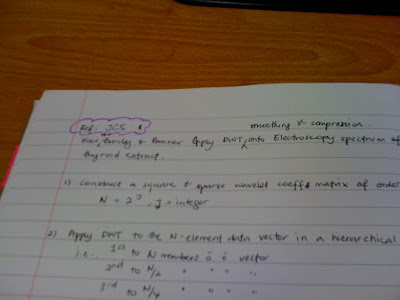 Ref. JCS
smoothing & compression.
How, Barclay & Bonner Apply DWT, onto Electroscopy spectrum of
thyroid extract.
1) construct a square & sparse wavelet coeffs matrix of order
N = 2^j, j = integer
2) Apply DWT to the N-element data vector in a hierarchical
i.e., 1st to N members ö ë vector
2nd to N/2 " " "
3rd to N/4 " " "